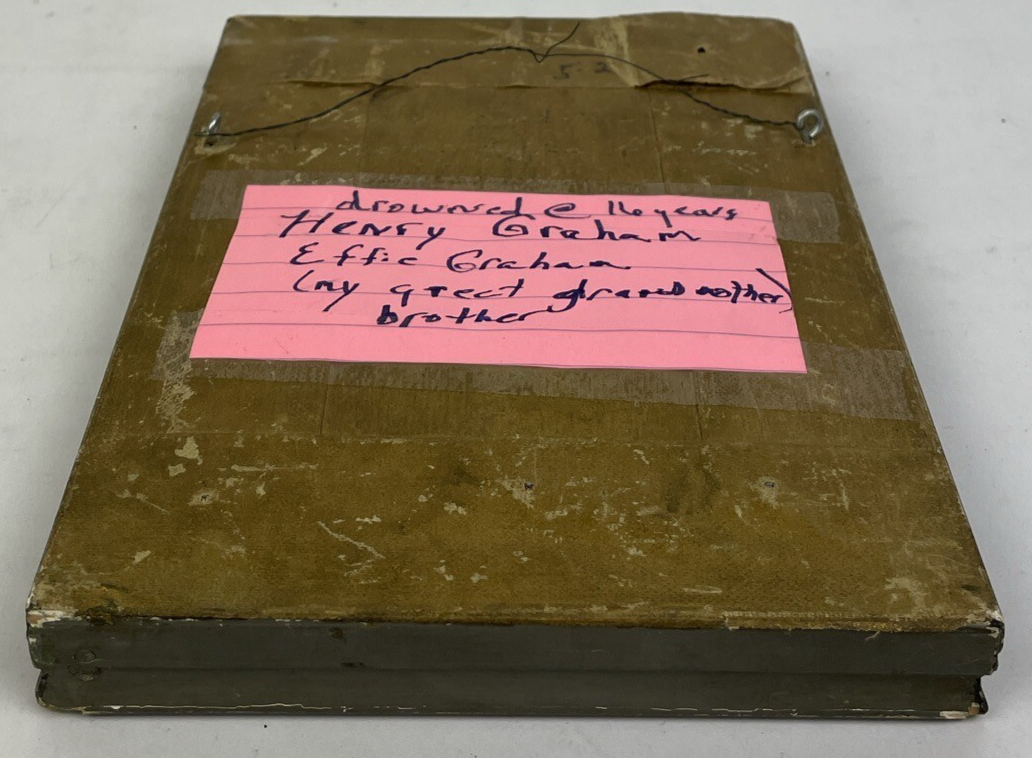 5-2
drowned @ 16 years
Henry Graham
Effie Graham
(my great grandmother)
brother